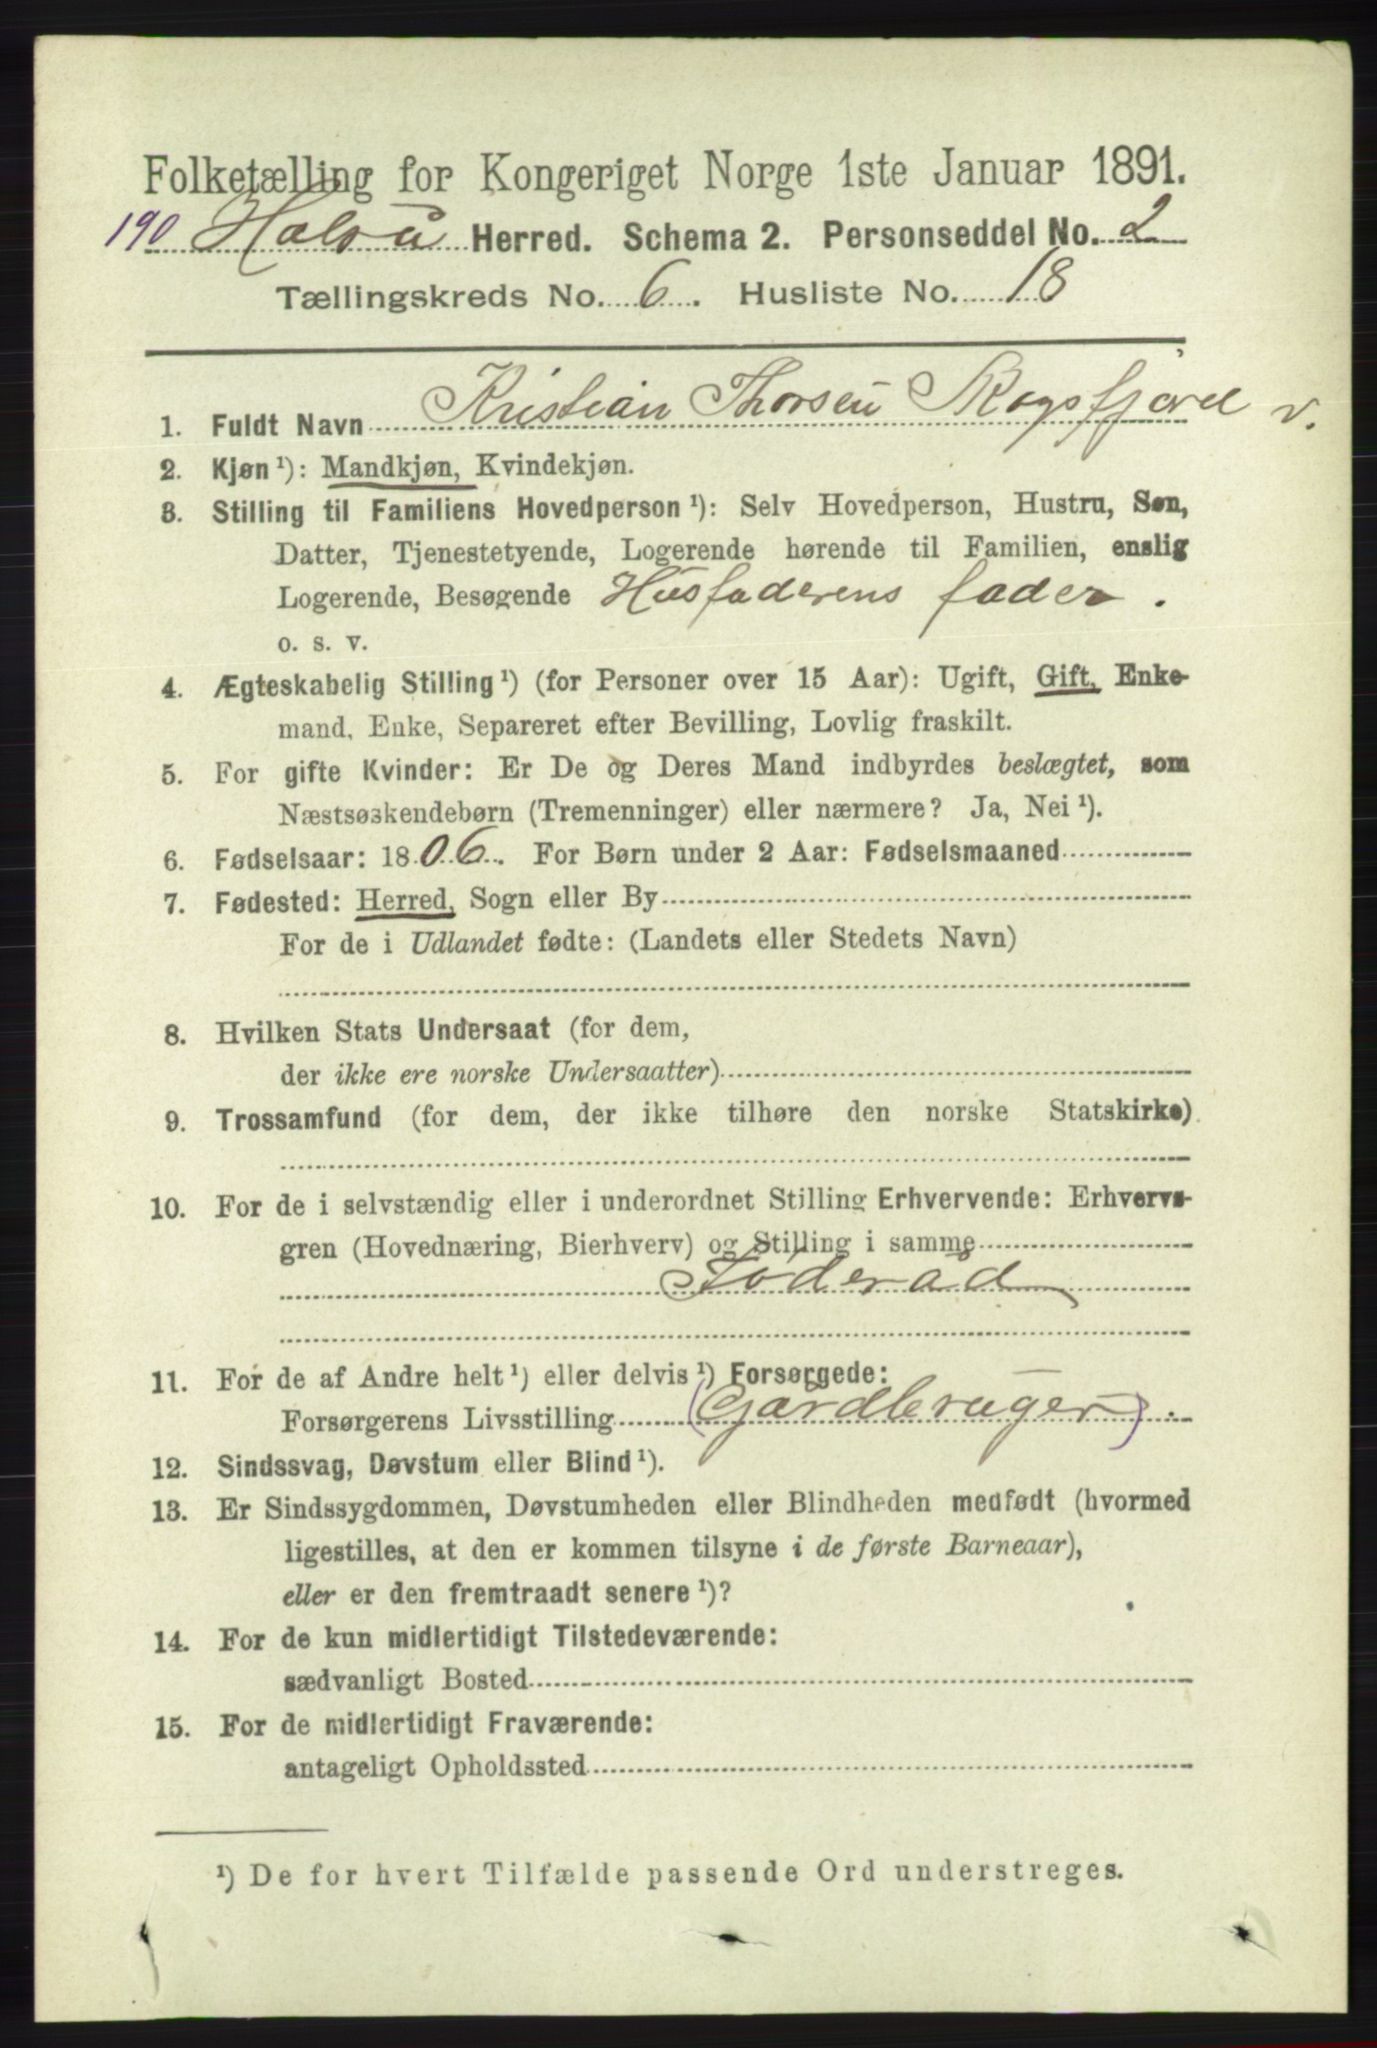 Folketælling for Kongeriget Norge 1ste Januar 1891.
190 Halså Herred. Schema 2. Personseddel No. 2
Tællingskreds No. 6. Husliste No. 18
1. Fuldt Navn Kristian Thorsen Skogsfjord v.
2. Kjøn ¹): Mandkjøn, Kvindekjøn.
3. Stilling til Familiens Hovedperson ¹): Selv Hovedperson, Hustru, Søn,
Datter, Tjenestetyende, Logerende hørende til Familien, enslig
Logerende, Besøgende Husfaderens fader.
o. s. v.
4. Ægteskabelig Stilling ¹) (for Personer over 15 Aar): Ugift, Gift, Enke-
mand, Enke, Separeret efter Bevilling, Lovlig fraskilt.
5. For gifte Kvinder: Er De og Deres Mand indbyrdes beslægtet, som
Næstsøskendebørn (Tremenninger) eller nærmere? Ja, Nei ¹).
6. Fødselsaar: 1806. For Børn under 2 Aar: Fødselsmaaned
7. Fødested: Herred, Sogn eller By
For de i Udlandet fødte: (Landets eller Stedets Navn)
8. Hvilken Stats Undersaat (for dem,
der ikke ere norske Undersaatter)
9. Trossamfund (for dem, der ikke tilhøre den norske Statskirke)
10. For de i selvstændig eller i underordnet Stilling Erhvervende: Erhvervs-
gren (Hovednæring, Bierhverv) og Stilling i samme
Foderåd
11. For de af Andre helt ¹) eller delvis ¹) Forsørgede:
Forsørgerens Livsstilling (Gårdbruger).
12. Sindssvag, Døvstum eller Blind ¹).
13. Er Sindssygdommen, Døvstumheden eller Blindheden medfødt (hvormed
ligestilles, at den er kommen tilsyne i de første Barneaar),
eller er den fremtraadt senere ¹)?
14. For de kun midlertidigt Tilstedeværende:
sædvanligt Bosted
15. For de midlertidigt Fraværende:
antageligt Opholdssted
¹) De for hvert Tilfælde passende Ord understreges.